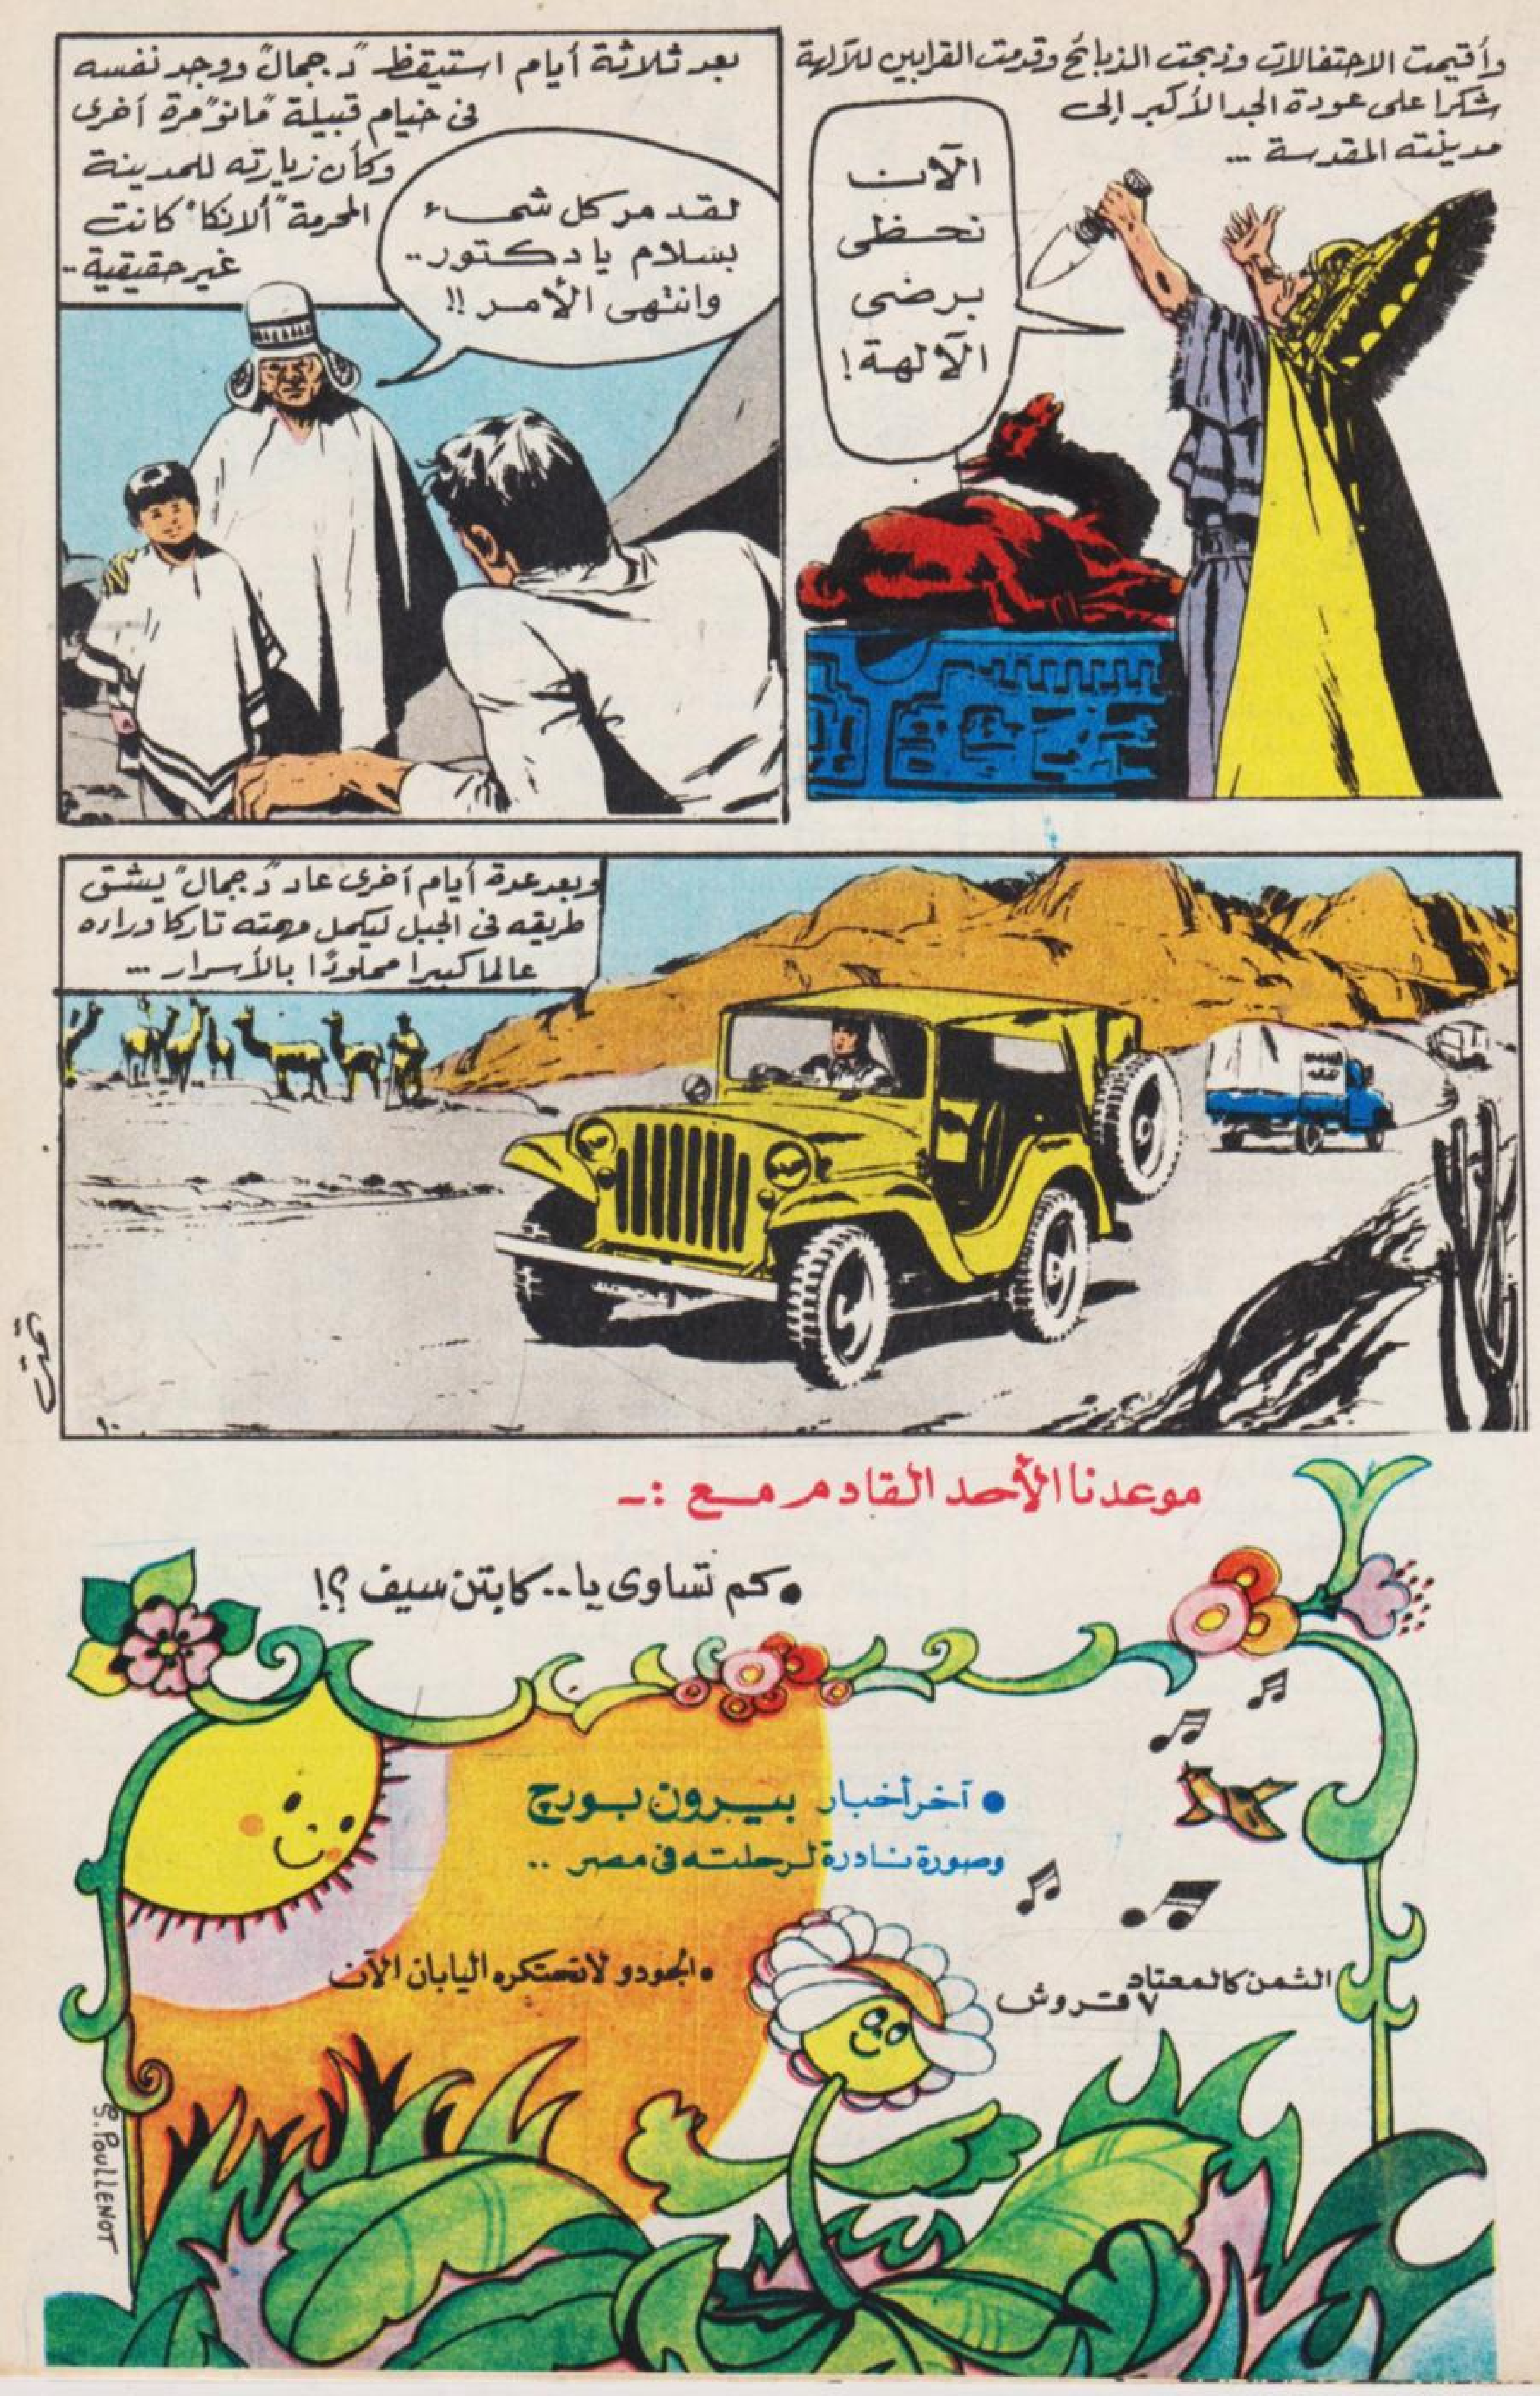 وأقيمت الاحتفالات وذبحت الذبائح وقدمت القرابين للآلهة
شكرا على عودة الجد الأكبر إلى
مدينته المقدسة ...
الآن
نحظى
برضى
الآلهة !
بعد ثلاثة أيام استيقظ "د. جمال" ووجد نفسه
فى خيام قبيلة "مانو" مرة أخرى
وكأن زيارته للمدينة
المحرمة "ألانكا" كانت
غير حقيقية ..
لقد مر كل شىء
بسلام يا دكتور ..
وانتهى الأمر !!
وبعد عدة أيام أخرى عاد "د. جمال" يشق
طريقه فى الجبل ليكمل مهمته تاركا وراءه
عالما كبيرا مملوءا بالأسرار ...
١٠
تمت
موعدنا الأحد القادم مع :-
• كم تساوى يا .. كابتن سيف ؟!
• آخر أخبار بيرون بورج
وصورة نادرة لرحلته فى مصر ..
• الجودو لا تحتكره اليابان الآن
الثمن كالمعتاد
٧ قروش
S. POULLENOT